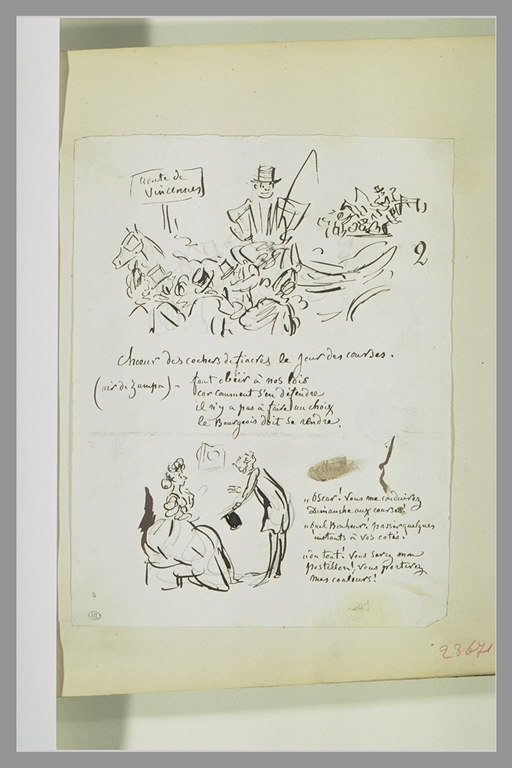 Route de
Vincennes
2
Choeur des cochers de fiacres le jour des courses.
(air de Zampa) - faut obéir à nos lois
car comment s'en défendre
il n'y a pas à faire un choix
le Bourgeois doit se rendre.
"Oscar! Vous me conduirez
Dimanche aux courses
"quel Bonheur! passer quelques
instants à vos cotés.
"du tout! vous serez mon
postillon! vous porterez
mes couleurs!